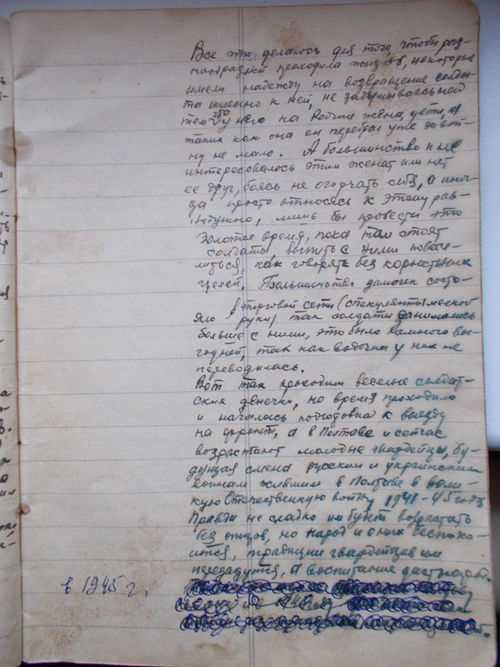 Все это делалось для того чтобы раз-
нообразней проходила жизнь, некоторые
имели надежду на возвращение солда-
та именно к ней, не задумываясь над
тем что у него на Родине жена, дети, а
таких как она он перебрал уже за вой-
ну не мало. А большинство и не
интересовалось этим женат или нет
ее друг, боясь не огорчать себя, а ино-
да просто относясь к этому рав-
нодушно, лишь бы провести это
золотое время, пока там стоят
солдаты выпить с ними повесе-
литься, как говорят без корыстных
целей. Большинство дамочек состо-
яло в торговой сети (спекулянтской
руки) так солдаты занимались
больше с ними, это было немного вы-
годней, так как водочка у них не
переводилась.
Вот так проходили веселые солдат-
ские денечки, но время проходило
и началась подготовка к выезду
на фронт, а в Полтаве и сейчас
возрастают молодые гвардейцы, бу-
дущая смена русским и украинским
воинам жившим в Полтаве в вели-
кую Отечественную войну 1941-45 года
Правда не сладко им будет возрастать
без отцов, но народ о них беспоко-
ится, традиции гвардейцев им
передадутся, а воспитание даст народ.
в 1945 г,